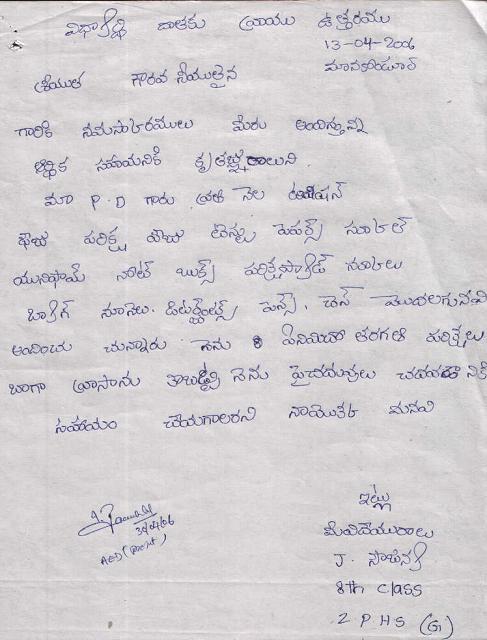 విధ్యార్థి దాతకు వ్రాయు ఉత్తరము
13-04-2006
మానకొండూర్
శ్రీయుత గౌరవ నీయులైన
గారికి నమస్కారములు మీరు అందిస్తున్న
ఆర్థిక సహాయనికి కృతజ్ఞురాలుని.
మా P.D గారు ప్రతి నెల ట్యూషన్
ఫీజు పరిక్ష ఫీజు టెస్టు పేపర్స్ స్కూల్
యునిఫామ్ నోట్ బుక్స్ పరిక్షప్యాడ్
బ్యాగ్ నూనెలు. డిటర్జెంట్స్ పెన్స్, మొదలగునవి
అందించు చున్నారు నేను 8 ఎనిమిదో తరగతి పరిక్షలు
బాగా వ్రాసాను కాబట్టి నేను పైచదువులు చదవడానికి
సహాయం చేయగలరని నాయొక్క మనవి
ఇట్లు
మీవిదేయురాలు
J. సౌజన్య
8th class
Z P H S (G)